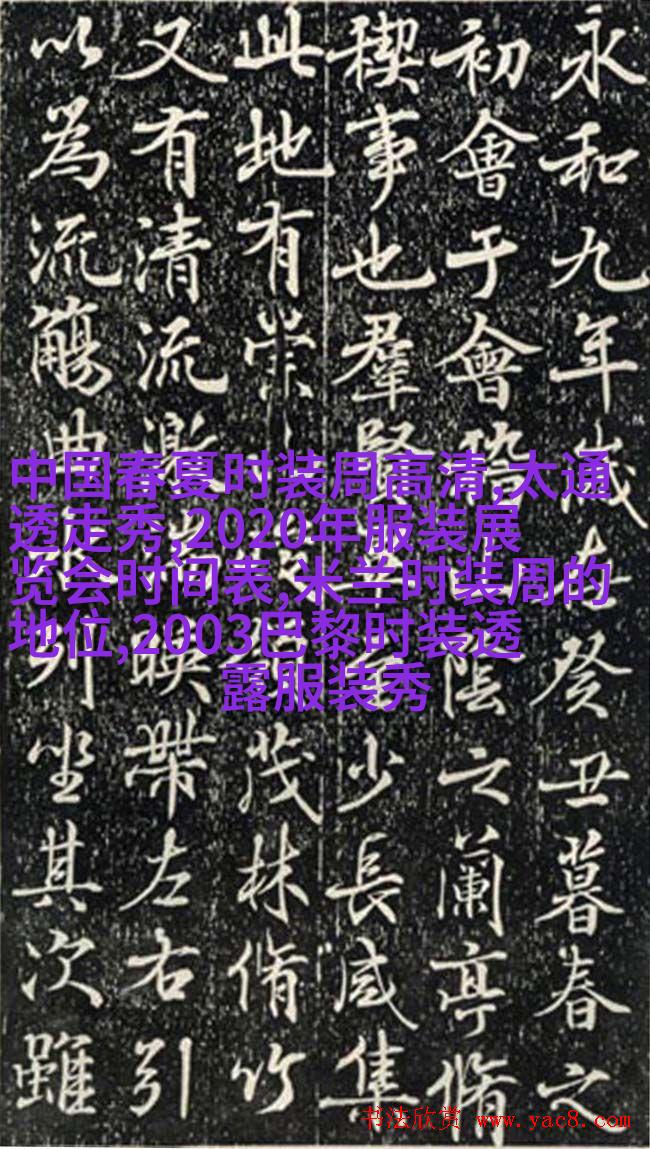 永和九年歲在癸丑暮春之
初會于會稽陰之蘭亭脩
稧事也羣賢少長咸集
此地有崇茂林脩竹
又有清流激映帶左右引
以為流觴曲列坐其次雖
中国春夏时装周高清,太通
透走秀,2020年服装展
览会时间表,米兰时装周的
地位,2003巴黎时装透
露服装秀
书法欣赏 www.yac8.com